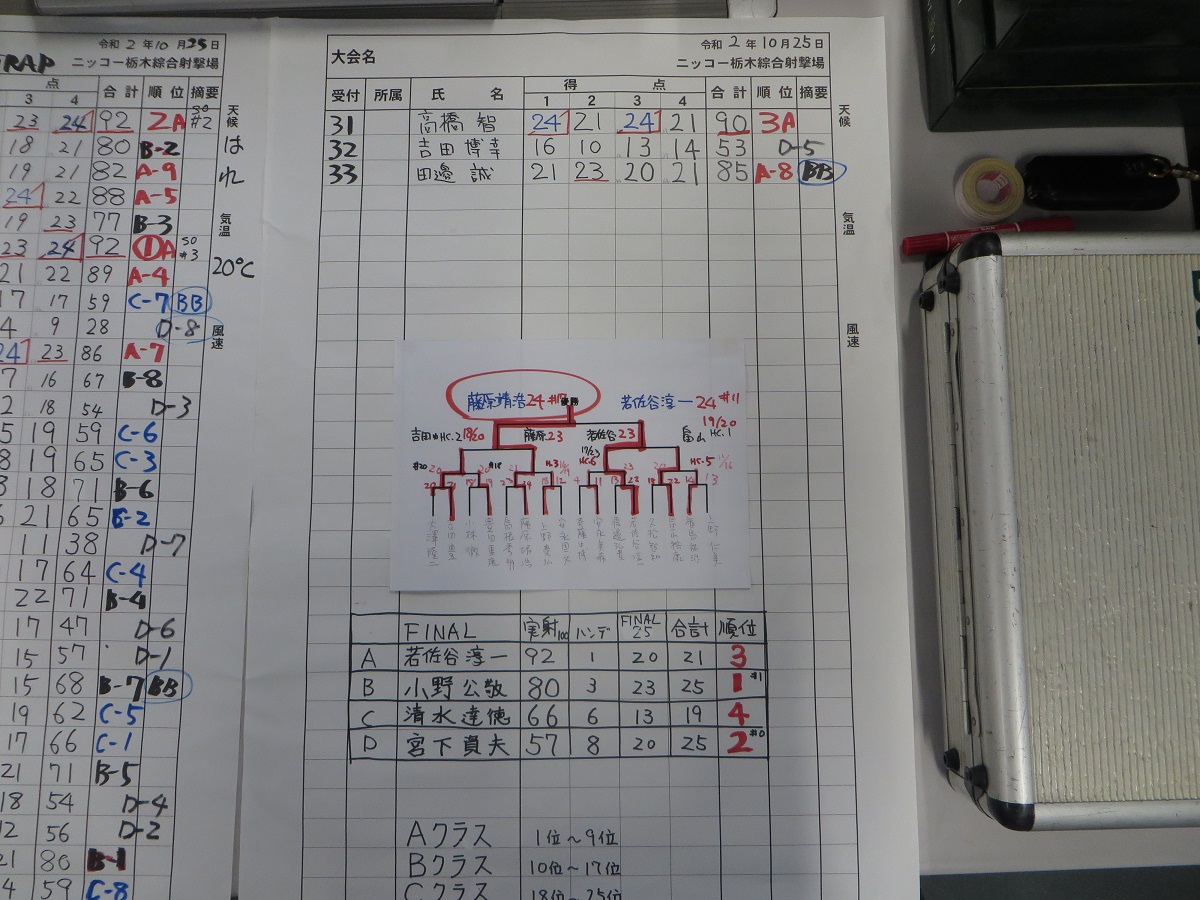 RAP
令和 2 年 10 月 25 日
ニッコー栃木綜合射撃場
点
3 4 合計 順位 摘要
23 24 92 2A SO #2
18 21 80 B-2
19 21 82 A-9
24 22 88 A-5
19 23 77 B-3
23 24 92 ①A SO #3
21 22 89 A-4
17 17 59 C-7 BB
4 9 28 D-8
24 23 86 A-7
7 16 67 B-8
2 18 54 D-3
5 19 59 C-6
8 19 65 C-3
3 18 71 B-6
21 65 C-2
11 38 D-7
17 64 C-4
22 71 B-4
17 47 D-6
15 57 D-1
15 68 B-7 BB
19 62 C-5
17 66 C-1
21 71 B-5
18 54 D-4
12 56 D-2
21 80 B-1
4 59 C-8
天候
はれ
気温
20℃
風速
大会名
令和 2 年 10 月 25 日
ニッコー栃木綜合射撃場
受付 所属 氏名 得点 合計 順位 摘要
1 2 3 4
31 高橋 智 24 21 24 21 90 3A
32 吉田 博幸 16 10 13 14 53 D-5
33 田邊 誠 21 23 20 21 85 A-8 BB
天候
気温
風速
藤原靖浩 24 #12 優勝
若佐谷淳一 24 #11
吉田 HC.2 18/20
藤原 23
若佐谷 23
畠山 HC.1 19/20
FINAL 実射100 ハンデ FINAL 25 合計 順位
A 若佐谷淳一 92 1 20 21 3
B 小野公敬 80 3 23 25 1 #1
C 清水達徳 66 6 13 19 4
D 宮下貢夫 57 8 20 25 2 #0
Aクラス 1位～9位
Bクラス 10位～17位
Cクラス 18位～25位